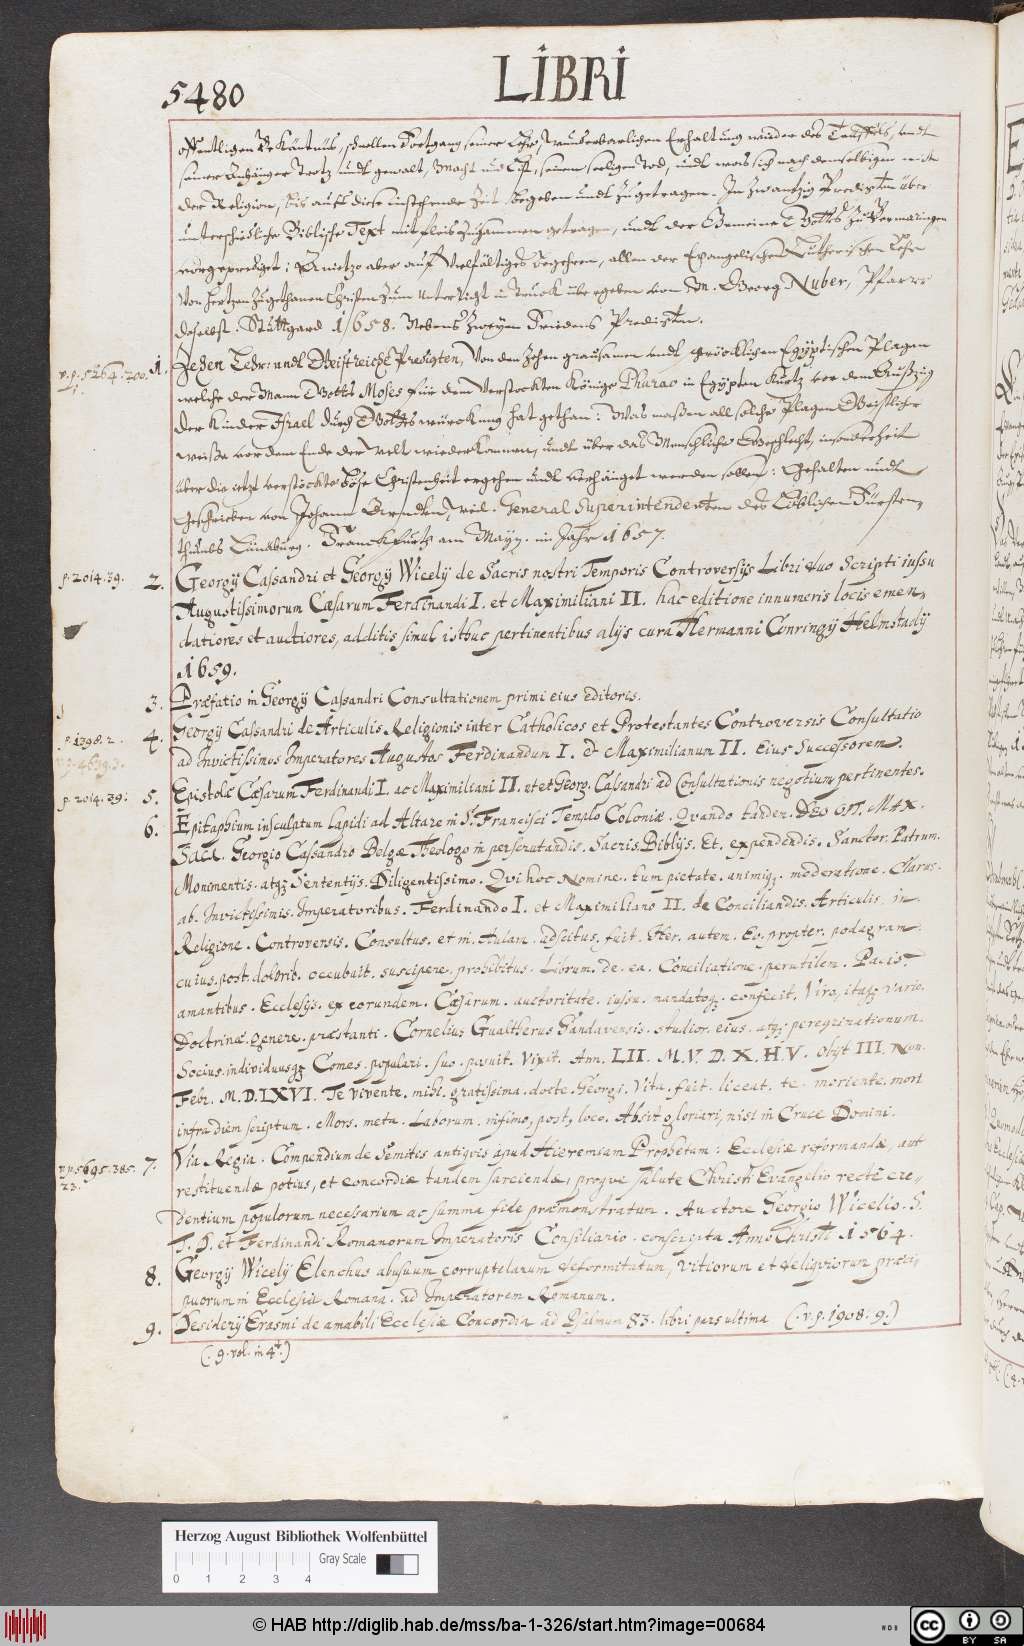 LIBRI
5480
offentligen Bekäntnüs, schnellen Fortgang seiner Lehr, wunderbarlichen Erhaltung wieder des Teuffels, undt
seiner Anhänger Trotz undt gewalt, Macht und List, seinem seeligen Tod, undt was sich nach demselbigen mit
der Religion, bis auff diese instehende Zeit begeben undt zugetragen. In zwantzig Predigten über
unterschiedliche Biblische Text mit fleis zusammen getragen, undt der Gemeine Gottes zu
vorgeprediget; Anietzo aber auff vielfältiges begehren, allen der Evangelischen Lutherischen Lehr
von Hertzen zugethanen Christen zum unterricht in Truck übergeben von M. Georg Nuber, Pfarrr
daselbst. Stuttgard 1658. Nebens zweyen Friedens Predigten.
v. p. 5264. 200. 1. Zehen Lehr- undt Geistreiche Predigten, Von den Zehen grausamen undt schröcklichen Egyptischen Plagen
welche der Mann Gottes Moses für dem Verstockten Könige Pharao in Egypten kurtz vor dem Außzug
der Kinder Israel durch Gottes würckung hat gethan: Was maßen all solche Plagen Geistlicher
weise vor dem Ende der Welt wiederkommen, undt über das Menschliche Geschlecht, insonderheit
über die ietzt verstockte böse Christenheit ergehen undt verhänget werden sollen: Gehalten undt
Geschrieben von Johann Arndten, weil. General Superintendenten des Löblichen Fürsten-
thumbs Lünäburg. Franckfurth am Mayn. im Jahr 1657.
p. 2014. 39. 2. Georgij Cassandri et Georgij Wicelij de Sacris nostri Temporis Controversijs Libri duo Scripti iussu
Augustissimorum Cæsarum Ferdinandi I. et Maximiliani II. hac editione innumeris locis emen-
datiores et auctiores, additis simul istbuc pertinentibus alijs cura Hermanni Conringij Helmstadij
1659.
3. Præfatio in Georgij Cassandri Consultationem primi eius editoris.
p. 1398. 2. 4. Georgij Cassandri de Articulis Religionis inter Catholicos et Protestantes Controversis Consultatio
ad Invictissimos Imperatores Augustos Ferdinandum I. et Maximilianum II. Eius Successorem.
v. p. 4639. 3.
p. 2014. 39. 5. Epistolæ Cæsarum Ferdinandi I. ac Maximiliani II. ut et Georg. Cassandri ad Consultationis negotium pertinentes.
6. Epitaphium insculptum lapidi ad Altare in S. Francisci Templo Coloniæ. Quando tandem. Deo Opt. Max.
Sacr. Georgio Cassandro Belgæ Theologo in perscrutandis. Sacris Biblijs. Et. expendendis. Sanctor. Patrum.
Monimentis. atq; Sententijs. Diligentissimo. Qui hoc Nomine. tum pietate. animiq;. moderatione. Clarus.
ab. Invictissimis. Imperatoribus. Ferdinando I. et Maximiliano II. de Conciliandis. Articulis. in
Religione. Controversis. Consultus. et in. Aulam. adscitus. fuit. Iter. autem. Eo. propter. podagram.
cuius. post. dolorib. occubuit. suscipere. prohibitus. Librum. de. ea. Conciliatione. perutilem. Pacis
amantibus. Ecclesijs. ex eorundem. Cæsarum. auctoritate. iussu. mandatoq;. confecit. Viro, itaq; vario.
Doctrinæ. genere. præstanti. Cornelius Gualtherus Gandavensis. studior. eius. atq; peregrinationum.
Socius. individuusq; Comes. populari. suo. posuit. Vixit. Ann. LII. M. V. D. X. H. V. obijt III. Non.
Febr. M.D.LXVI. Te vivente. mihi. gratissima. docte. Georgi. Vita. fuit. liceat. te. moriente. mori
infra diem scriptum. Mors. meta. Laborum. infimo, post, loco. Absit gloriari, nisi in Cruce Domini.
v. p. 5695. 385. 7. Via Regia. Compendium de Semitis antiquis apud Hieremiam Prophetam: Ecclesiæ reformandæ, aut
23.
restituendæ potius, et concordiæ tandem sarciendæ, proque salute Christi Evangelio rectè cre-
dentium populorum necessarium ac summa fide præmonstratum. Auctore Georgio Wicelio. S.
T. D. et Ferdinandi Romanorum Imperatoris Consiliario. conscripta Anno Christi 1564.
8. Georgij Wicelij Elenchus abusuum corruptelarum deformitatum, vitiorum et reliquiorum præci-
puorum in Ecclesia Romana. ad Imperatorem Romanum.
9. Desiderij Erasmi de amabili Ecclesiæ Concordia ad Psalmum 83. libri pars ultima (. v. p. 1908. 9.)
(. 9. vol. in 4t.)
Herzog August Bibliothek Wolfenbüttel
Gray Scale
0 1 2 3 4
© HAB http://diglib.hab.de/mss/ba-1-326/start.htm?image=00684
WDB
cc BY SA